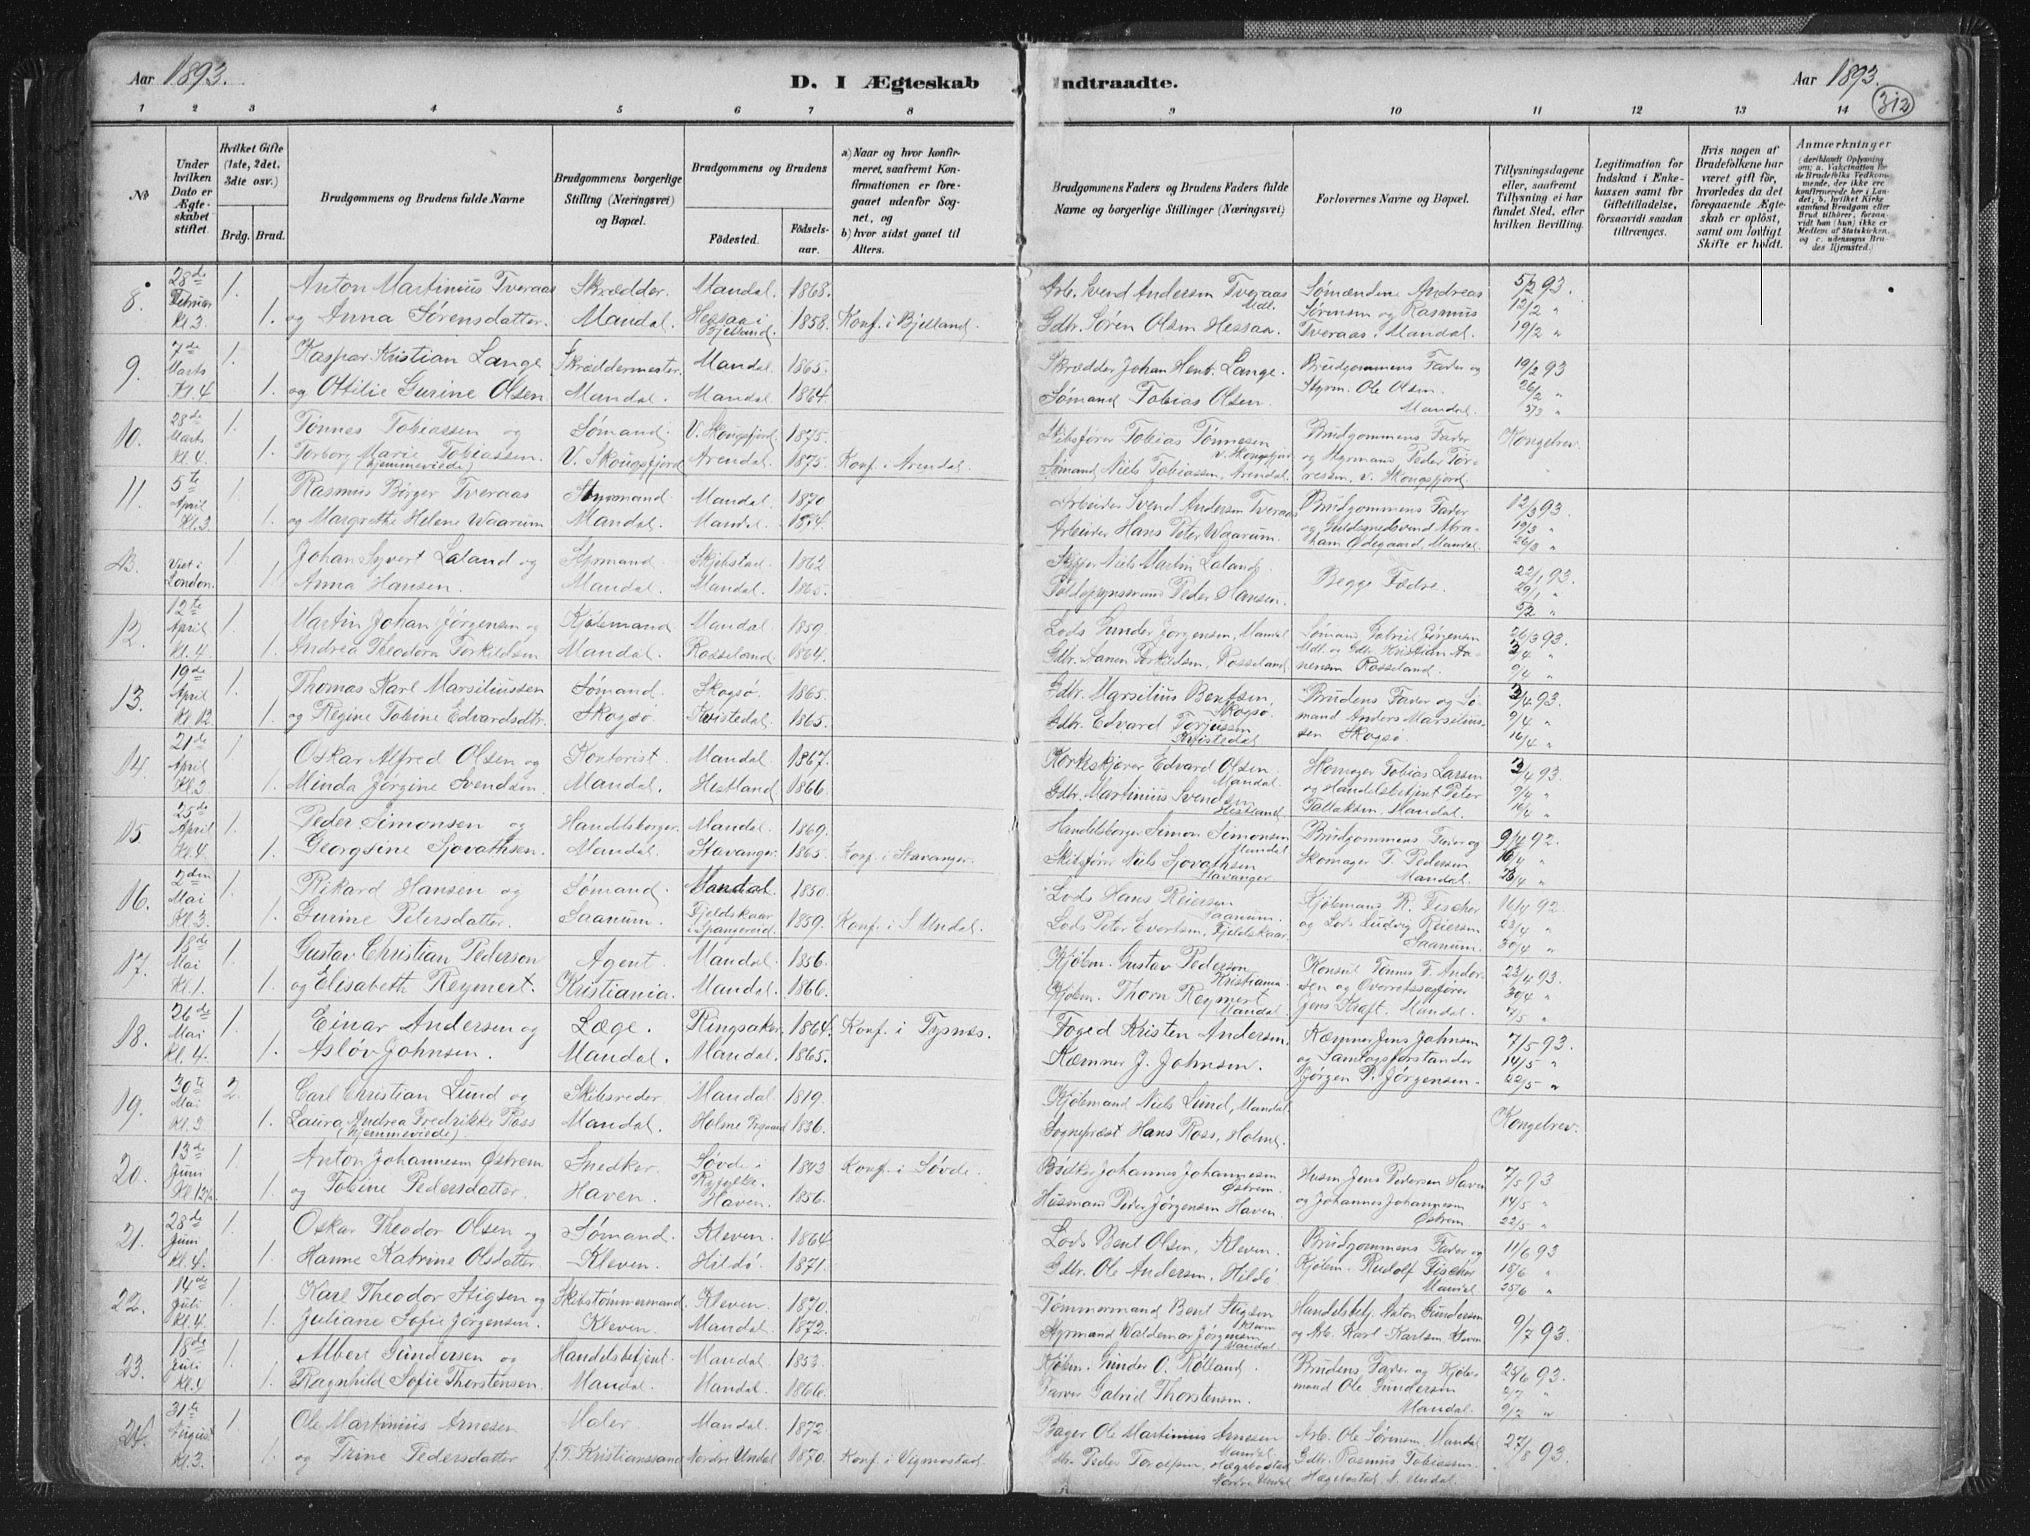 Aar 1893.
D. I Ægteskab Indtraadte.
Aar 1893.
312
1 2 3 4 5 6 7 8 9 10 11 12 13 14
No
Under hvilken Dato er Ægteskabet stiftet.
Hvilket Gifte (1ste, 2det, 3die osv.)
Brdg. Brud.
Brudgommens og Brudens fulde Navne
Brudgommens borgerlige Stilling (Næringsvei) og Bopæl.
Brudgommens og Brudens
Födested. Födselsaar.
a) Naar og hvor konfirmeret, saafremt Konfirmationen er foregaaet udenfor Sognet, og b) hvor sidst gaaet til Alters.
Brudgommens Faders og Brudens Faders fulde Navne og borgerlige Stillinger (Næringsvei)
Forlovernes Navne og Bopæl.
Tillysningsdagene eller, saafremt Tillysning ei har fundet Sted, efter hvilken Bevilling.
Legitimation for Indskud i Enkekassen samt for Giftetilladelse, forsaavidt saadan tiltrænges.
Hvis nogen af Brudefolkene har været gift för, hvorledes da det foregaaende Ægteskab er oplöst, samt om lovligt Skifte er holdt.
Anmærkninger
8 28de Februar Kl. 3 1. Anton Martinius Tveraas Skrædder. Mandal. 1868. Arb. Svend Andersen Tveraas Mdl. Sømændene Andreas 5/2 93.
1. og Anna Sørensdatter. Mandal. Hessaa i Bjelland. 1858. Konf. i Bjelland. Gdbr. Søren Olsen Hessaa. Sørensen og Rasmus Tveraas, Mandal. 12/2 " 19/2 "
9. 7de Marts Kl. 4 1. Kaspar Kristian Lange Skræddermester. Mandal. 1865. Skrædder Johan Henr. Lange. Brudgommens Fader og 19/2 93
1. og Ottilie Gurine Olsen. Mandal. Mandal. 1864. Sømand Tobias Olsen. Styrm. Ole Olsen. Mandal. 26/2 " 5/3 "
10. 28de Marts Kl. 4. 1. Tønnes Tobiassen og Sømand. V. Skougsfjord. 1875. Skibsfører Tobias Tønnesen V. Skougsfjord Brudgommens Fader Kongebrev.
1. Torborg Marie Tobiassen. (hjemmeviede) V. Skougsfjord Arendal. 1875. Konf. i Arendal. Sømand Niels Tobiassen, Arendal. og Styrmand Peder Tørresen, V. Skougsfjord.
11. 5te April Kl. 3 1. Rasmus Børger Tveraas Styrmand. Mandal. 1870 Arbeider Svend Andersen Tveraas Brudgommens Fader 12/3 93.
1. og Margrethe Helene Waarum Mandal. Mandal. 1874. Arbeider Hans Peter Waarum. og Guldsmedsvend Abraham Ødegaard, Mandal. 19/3 " 26/3 "
Viet i London. 1. Johan Syvert Laland og Styrmand. Skjibstad. 1862 Skipper Niels Martin Laland. Begge Fædre. 22/1 93.
1. Anna Hansen. Mandal. Mandal. 1865. Toldopsynsmand Peder Hansen. 29/1 " 5/2 "
12. 12te April Kl. 4. 1. Martin Johan Jørgensen og Kjøbmand Mandal. 1859. Lods Gunder Jørgensen, Mandal Sømand Gabriel Jørgensen 26/3 93.
1. Andrea Theodora Torkildsen Mandal. Rosseland. 1864. Gdbr. Aanen Torkildsen, Rosseland. Mdl. og Gdbr. Kristian Aanensen Rosseland. 3/4 " 9/4 "
13. 19de April Kl. 12 1. Thomas Karl Marsiliussen Sømand. Skogsø. 1865. Gdbr. Marsilius Bentsen, Skogsø. Brudens Fader og Sømand 3/4 93.
1. og Regine Tobine Edvardsdtr. Skogsø. Kvistedal. 1865. Gdbr. Edvard Torjussen Kvistedal Anders Marsiliussen Skogsø. 9/4 " 16/4 "
14. 21de April Kl. 3 1. Oskar Alfred Olsen og Kontorist. Mandal. 1867. Korkskjærer Edvard Olsen. Mandal. Skomager Tobias Larsen 3/4 93.
1. Minda Jørgine Svendsen. Mandal. Hestland 1866. Gdbr. Martinius Svendsen Hestland og Handelsbetjent Peter Tallaksen, Mandal. 9/4 " 16/4 "
15. 25de April Kl. 4. 1. Peder Simonsen og Handelsborger. Mandal. 1869. Handelsborger Simon Simonsen Mandal Brudgommens Fader og 9/4 92.
1. Georgsine Sjovathsen. Mandal. Stavanger. 1865. Konf. i Stavanger. Skibsfører Niels Sjovathsen Stavanger. Skomager T. Pedersen Mandal. 16/4 " 23/4 "
16. 2den Mai Kl. 3. 1. Rikard Hansen og Sømand. Mandal. 1850. Lods Hans Reiersen Saanum. Kjøbmand R. Fischer 16/4 92.
1. Gurine Petersdatter. Saanum. Fjeldskaar i Spangereid. 1859. Konf. i S. Undal. Lods Peter Evertsen, Fjeldskaar og Lods Ludvig Reiersen Saanum. 23/4 " 30/4 "
17. 18de Mai Kl. 1. 1. Gustav Christian Pedersen Agent. Mandal. 1856. Kjøbm. Gustav Pedersen Kristiania Konsul Tønnes F. Andersen 23/4 93.
1. og Elisabeth Reymert. Kristiania. Mandal. 1866. Kjøbm. Thorn Reymert Mandal. og Overretssagfører Jens Kraft, Mandal. 30/4 " 7/5 "
18. 26de Mai Kl. 4. 1. Einar Andersen og Læge. Ringsaker. 1864. Konf. i Tysnæs. Foged Kristen Andersen. Kæmner Jens Johnsen 7/5 93.
1. Asløv Johnsen. Mandal. Mandal. 1865. Kæmner J. Johnsen. og Samlagsforstander Jørgen P. Jørgensen. 14/5 " 22/5 "
19. 30te Mai Kl. 3 2. Carl Christian Lund og Skibsreder. Mandal. 1819. Kjøbmand Niels Lund, Mandal. Kongebrev.
1. Laura Andrea Fredrikke Ross (hjemmeviede). Mandal. Holme Prgaard 1836. Sognepræst Hans Ross, Holme.
20. 13de Juni 1. Anton Johannesen Østrem Snedker. Søvde i Ryfylke. 1843 Konf. i Søvde. Bødker Johannes Johannesen Østrem. Husm. Jens Pedersen Haven 7/5 93
1. og Tobine Pedersdatter. Haven. Haven. 1856. Husmand Peder Jørgensen Haven. og Johannes Johannesen Østrem. 14/5 " 22/5 "
21. 28de Juni Kl. 4. 1. Oskar Theodor Olsen og Sømand. Kleven. 1864 Lods Bent Olsen, Kleven. Brudgommens Fader og 11/6 93
1. Hanne Katrine Olsdatter. Kleven. Hildø. 1871. Gdbr. Ole Andersen, Hildø. Kjøbm. Rudolf Fischer Mandal 18/6 " 25/6 "
22. 14de Juli Kl. 4. 1. Karl Theodor Stigsen og Skibstømmermand Kleven. 1870. Tømmermand Bent Stigsen Kleven Handelsbetj. Anton Gundersen 9/7 93.
1. Juliane Sofie Jørgensen. Kleven. Mandal. 1872. Styrmand Waldemar Jørgensen Mandal. og Arb. Karl Karlsen, Kleven
23. 18de Juli Kl. 4 1. Albert Gundersen og Handelsbetjent. Mandal. 1853. Kjøbm. Gunder O. Rølland. Brudens Fader og Kjøbmand 25/6 93.
1. Ragnhild Sofie Thorstensen. Mandal. Mandal. 1866. Farver Gabriel Thorstensen. Ole Gundersen Mandal. 2/7 " 9/7 "
24. 31te August Kl. 3. 1. Ole Martinius Arnesen Maler Mandal. 1872 Bager Ole Martinius Arnesen Mandal. Arb. Ole Sørensen, Mandal 27/8 93.
1. og Trine Pedersdatter f. T. Kristianssand Nordre Undal 1870. Konf. i Vigmostad. Gdbr. Peder Toralfsen, Hægebostad Nordre Undal Gdbr. Rasmus Tobiassen. Hægebostad N. Undal.